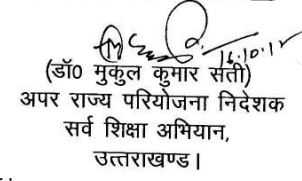 16.10.12
(डॉ0 मुकुल कुमार सती)
अपर राज्य परियोजना निदेशक
सर्व शिक्षा अभियान,
उत्तराखण्ड।